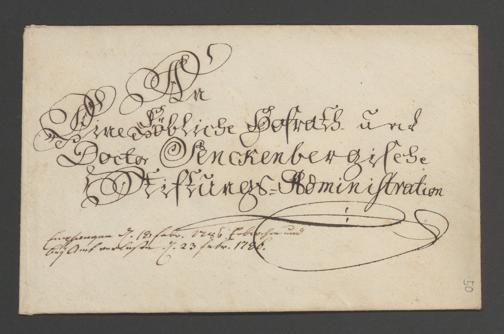 An
Eine Löbliche Hofrath und
Doctor Senckenbergische
Stiftungs=Administration
Empfangen d. 18 febr. 1786 Erbrochen und
d. 23 febr. 1786.
50